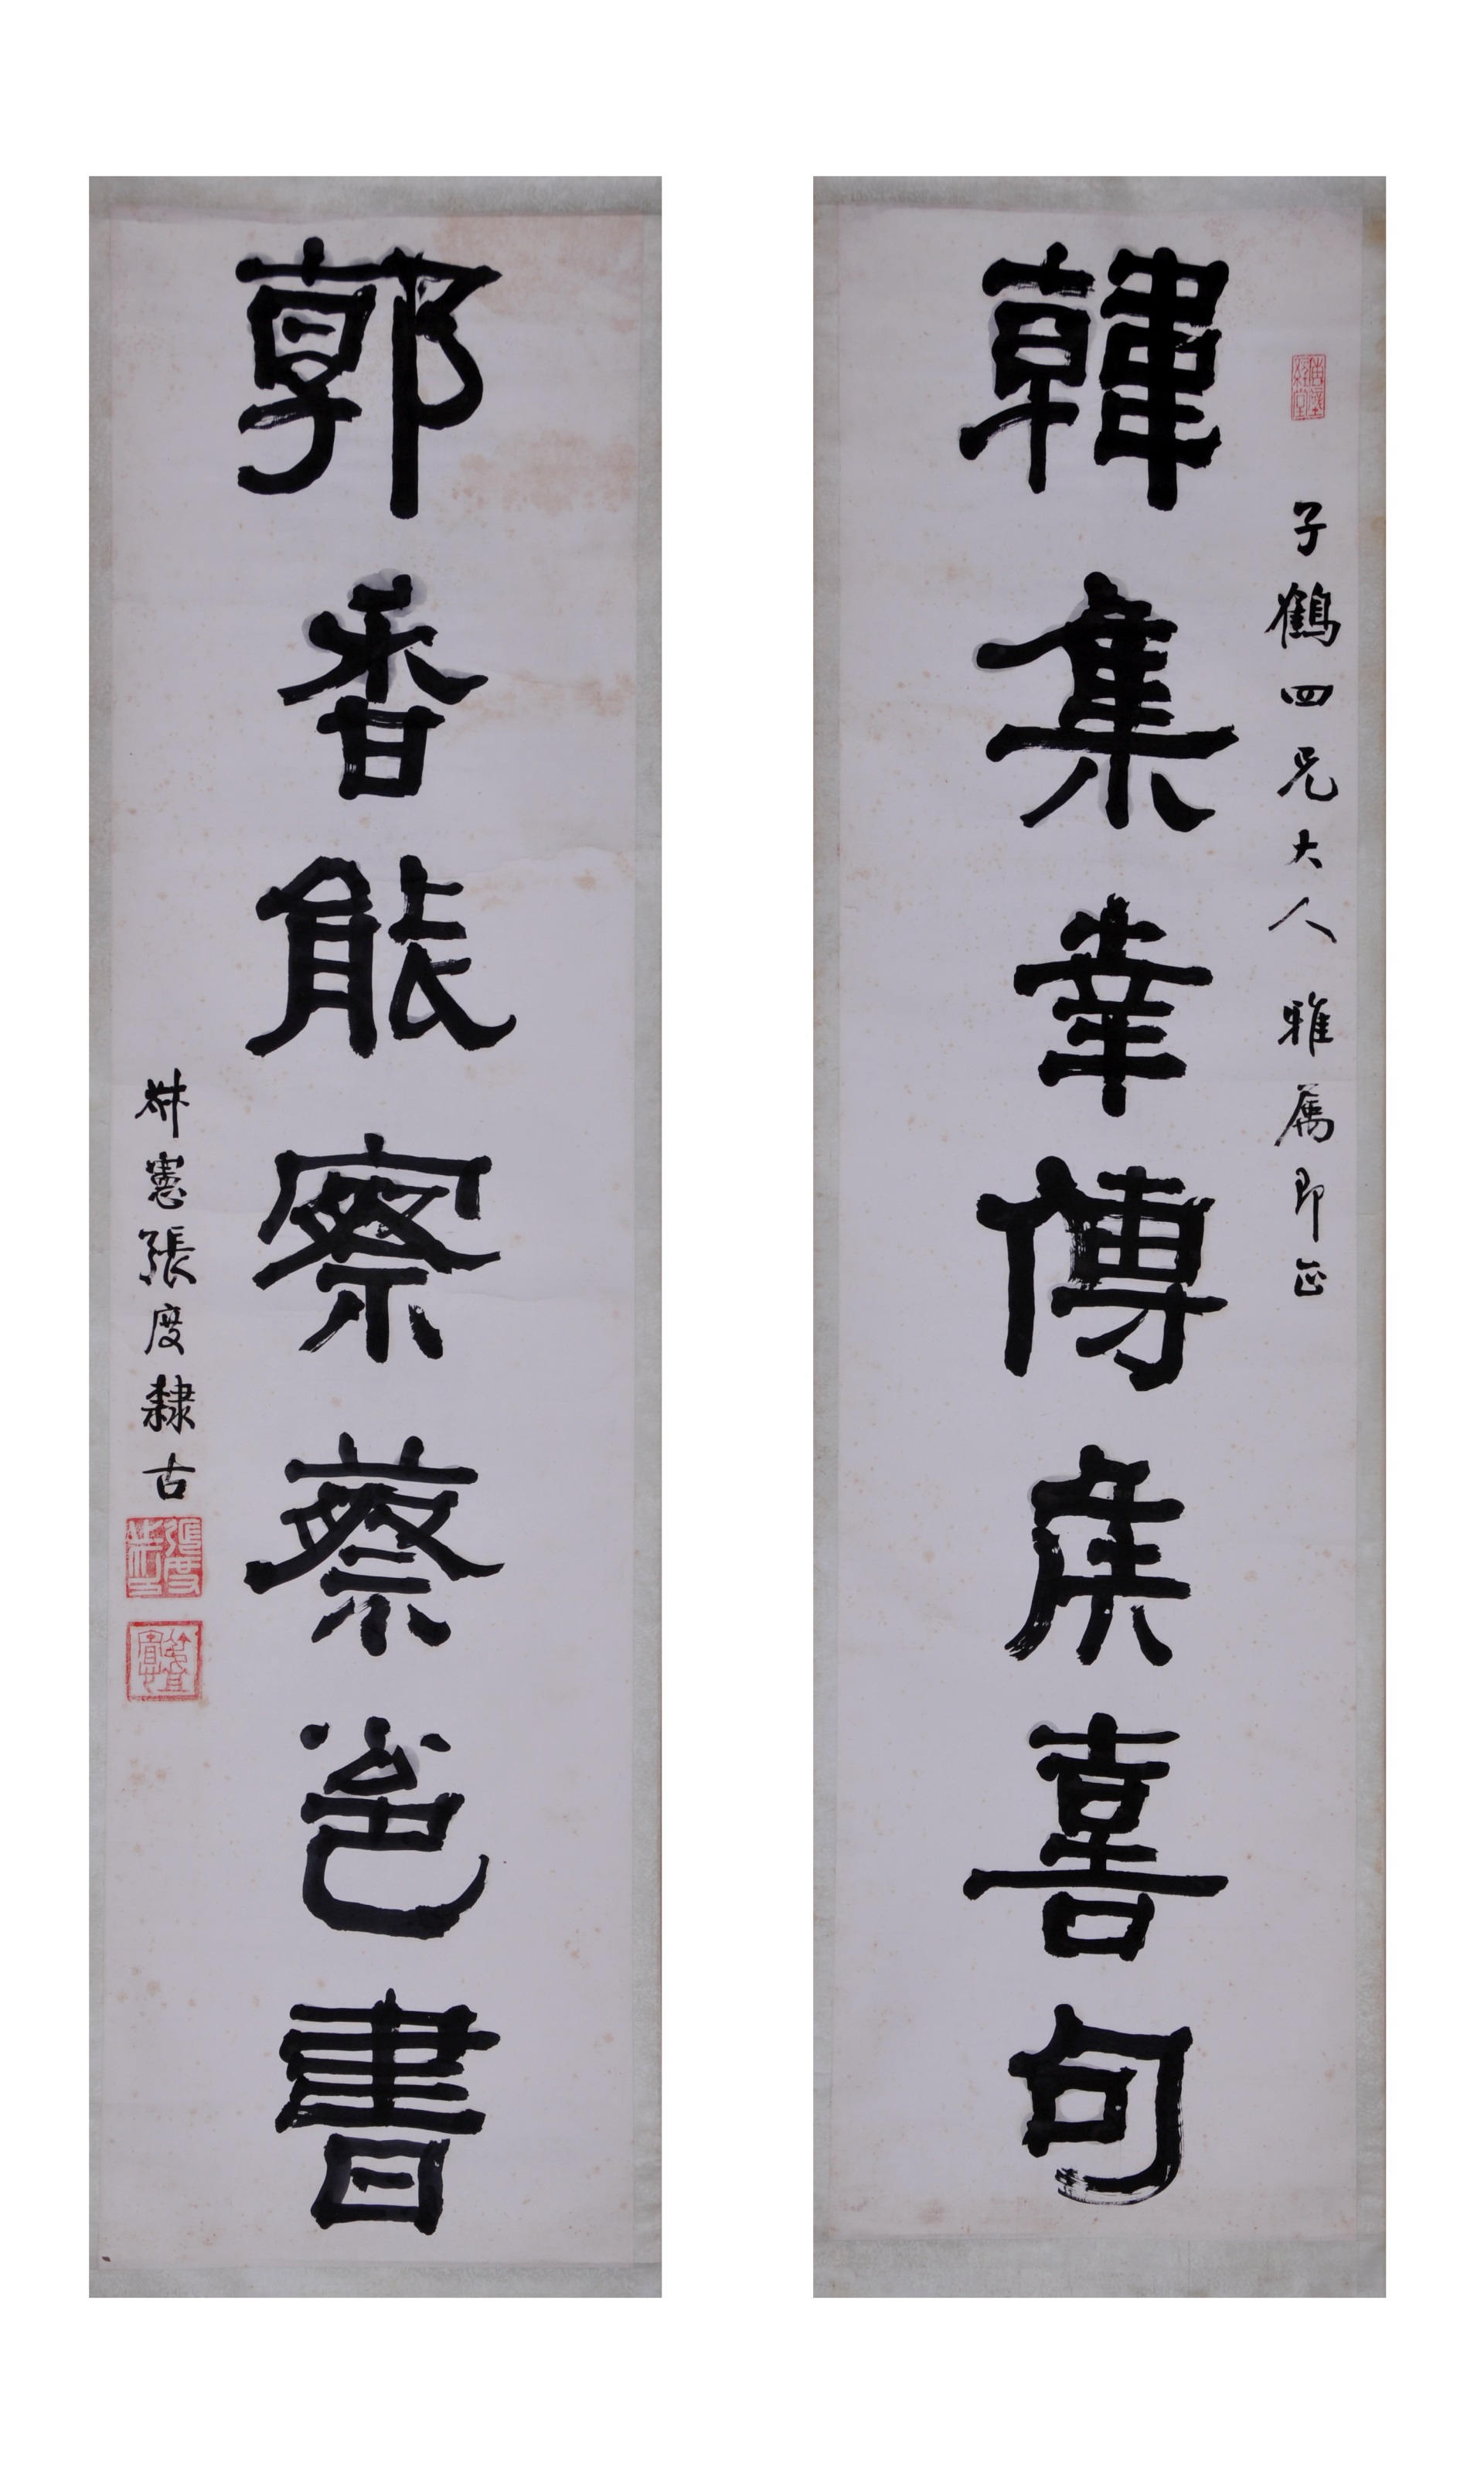 子鶴四兄大人雅屬即正
韓集幸傳矦喜句
郭香能察蔡邕書
叔憲張度隸古
張度